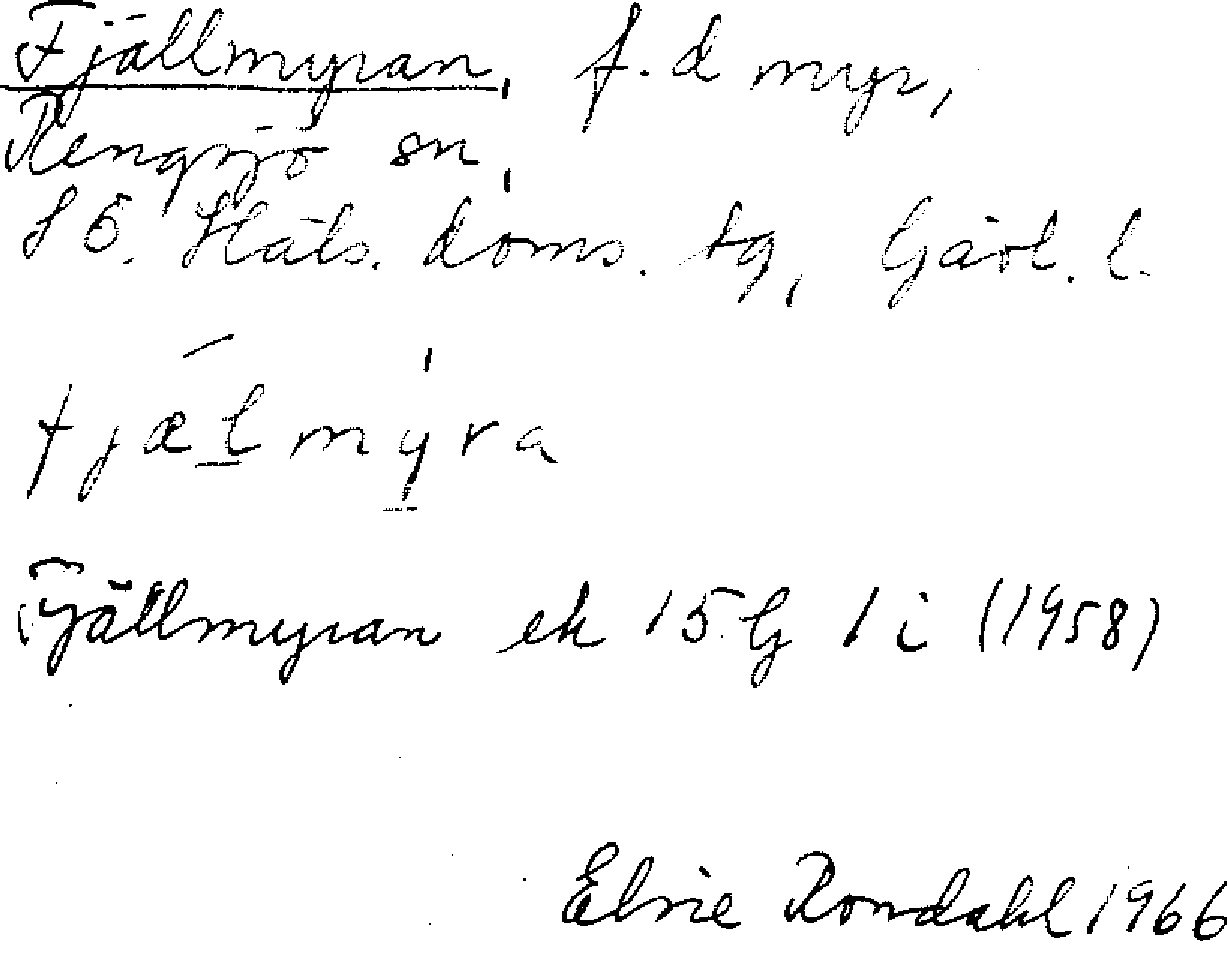 Fjällmyran, f.d myr,
Rengsjö sn,
S ö. Häls. doms. tg, Gävl. l.
fjælmyra
Fjällmyran ek 15 G 1 i (1958)
Elvie Rondahl 1966